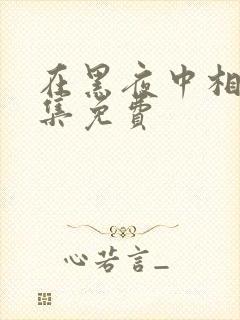 在黑夜中相
集免费
心若言_